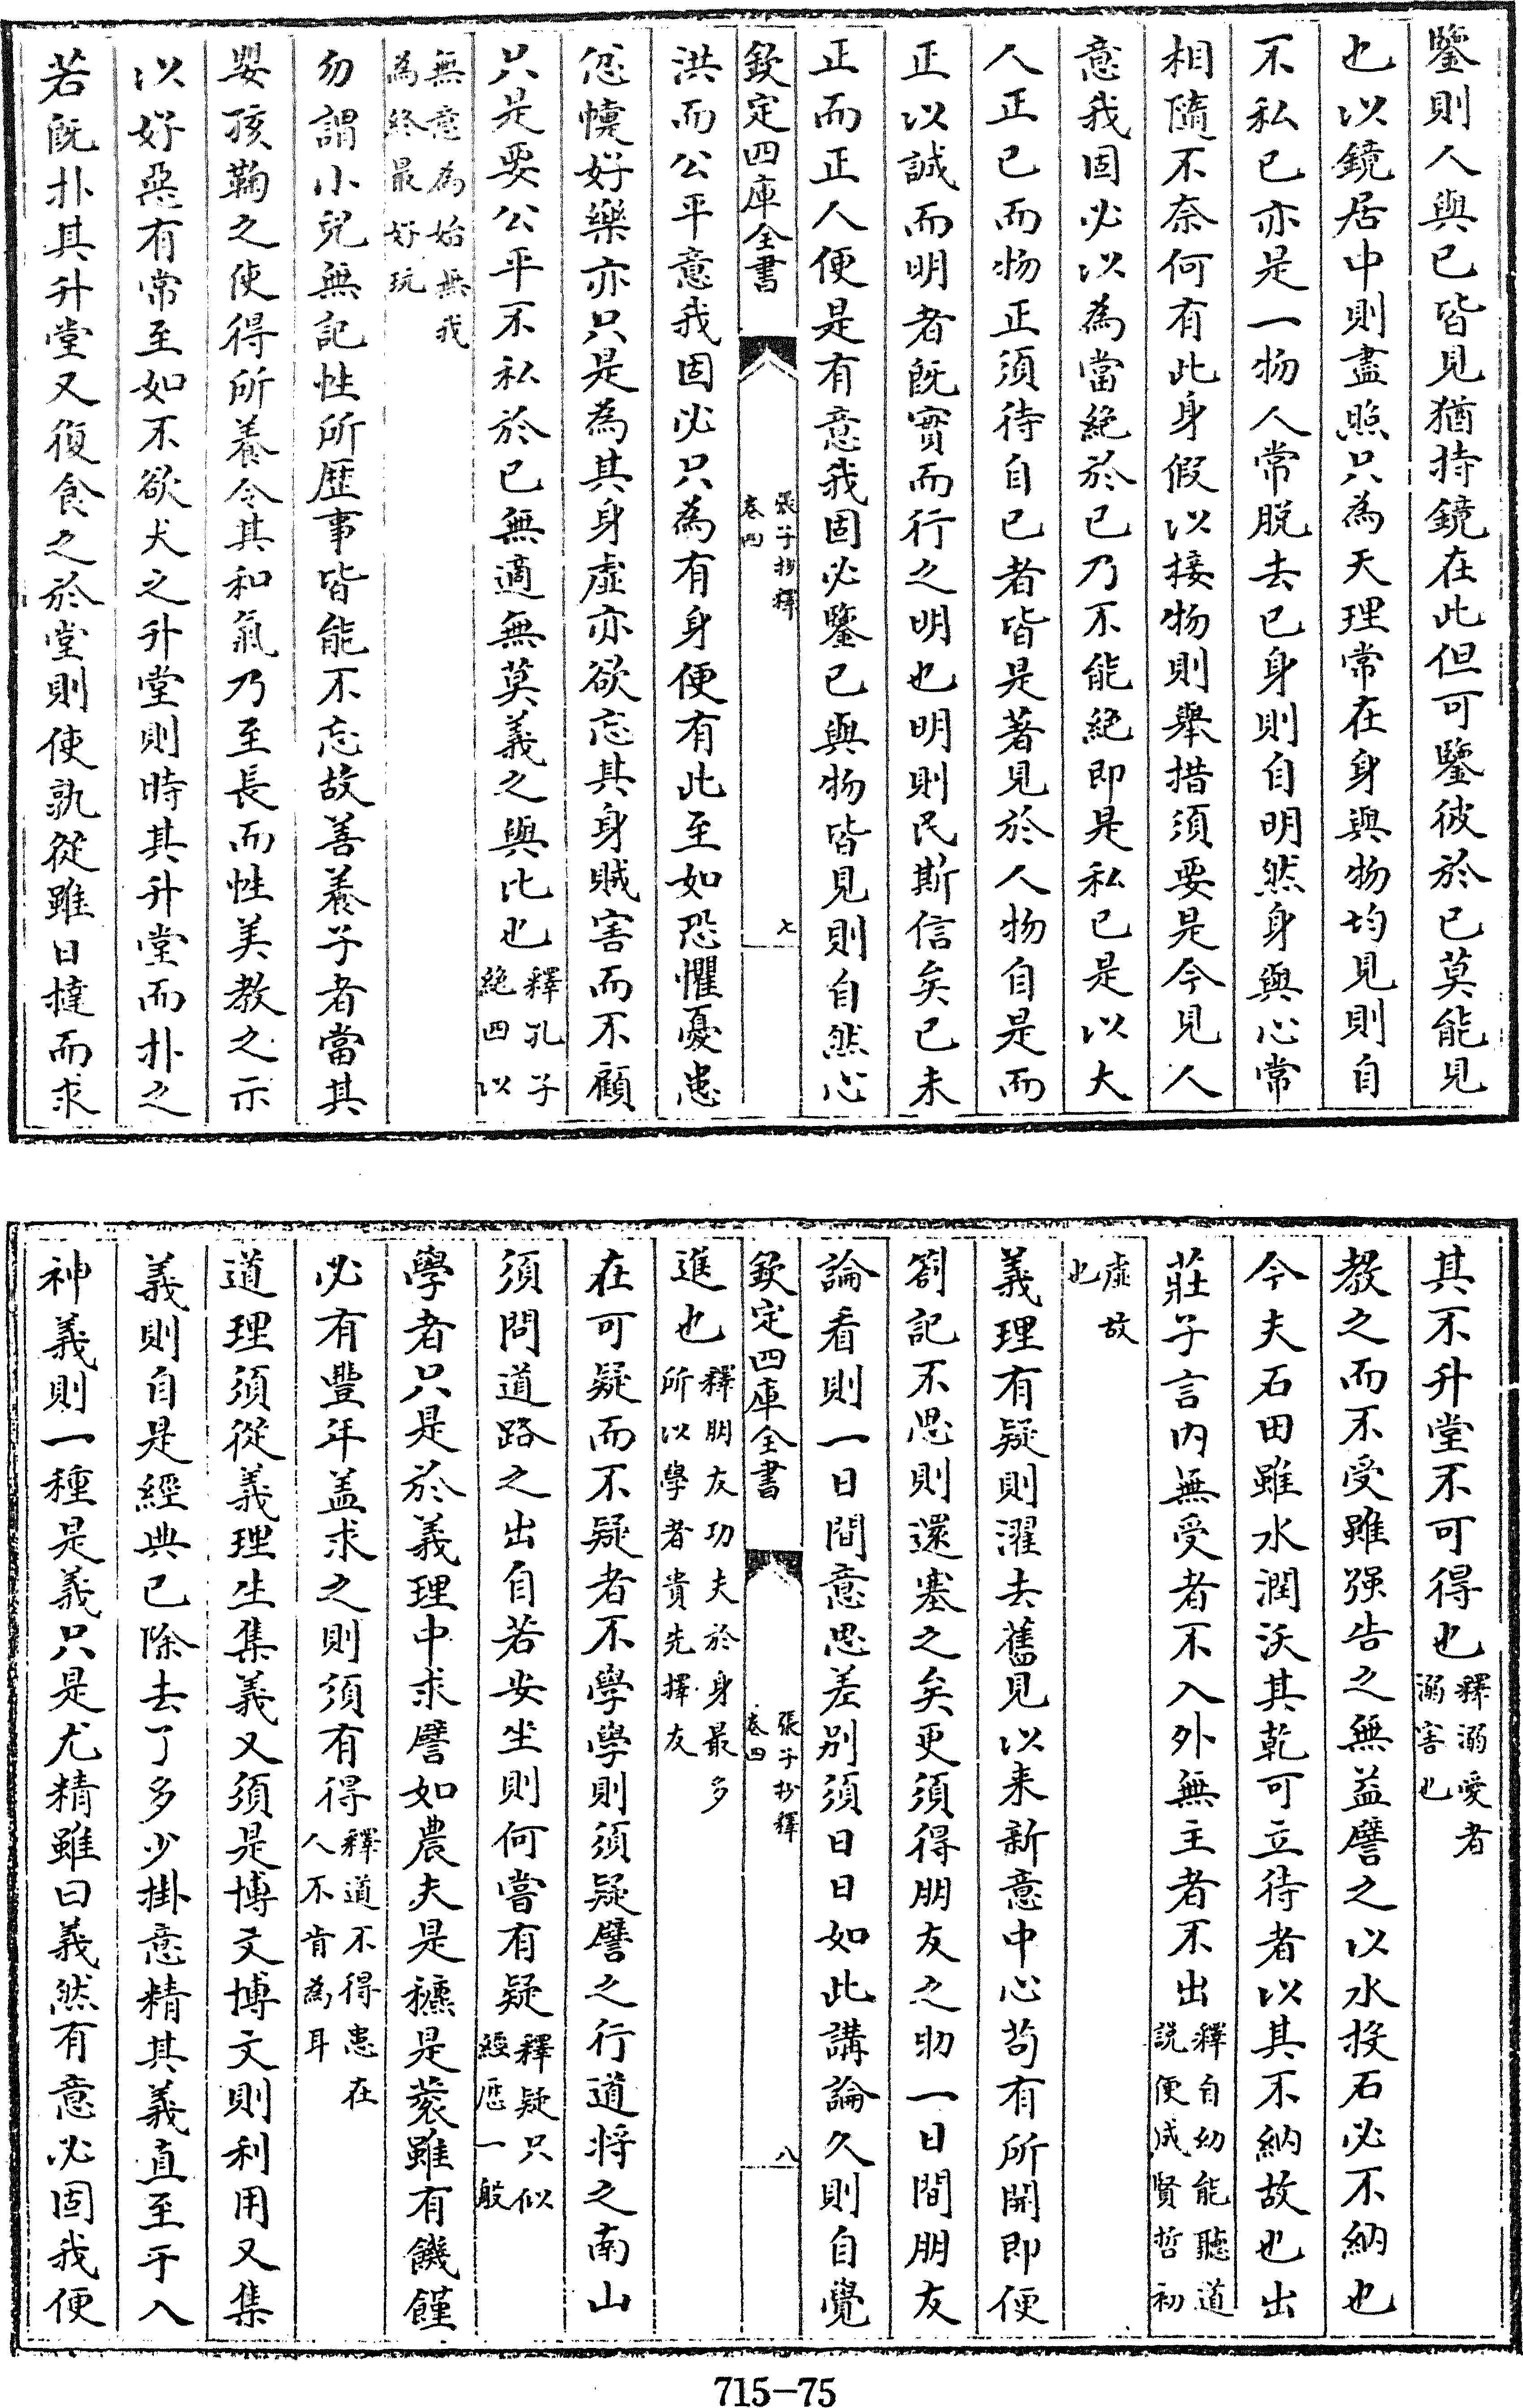 鑒則人與已皆見猶持鏡在此但可鑒彼於已莫能見
也以鏡居中則盡照只為天理常在身與物均見則自
不私已亦是一物人常脱去已身則自明然身與心常
相隨不奈何有此身假以接物則舉措須要是今見人
意我固必以為當絶於已乃不能絶即是私已是以大
人正已而物正須待自已者皆是著見於人物自是而
正以誠而明者既實而行之明也明則民斯信矣已未
正而正人便是有意我固必鑒已與物皆見則自然心
欽定四庫全書
張子抄釋
卷四
七
洪而公平意我固必只為有身便有此至如恐懼憂患
忿懥好樂亦只是為其身虛亦欲忘其身賊害而不顧
只是要公平不私於已無適無莫義之與比也
釋孔子
絶四以
無意為始無我
為終最好玩
勿謂小兒無記性所歴事皆能不忘故善養子者當其
嬰孩鞠之使得所養令其和氣乃至長而性美教之示
以好惡有常至如不欲犬之升堂則時其升堂而扑之
若既扑其升堂又復食之於堂則使孰從雖日撻而求
其不升堂不可得也
釋溺愛者
溺害也
教之而不受雖强告之無益譬之以水投石必不納也
今夫石田雖水潤沃其乾可立待者以其不納故也出
莊子言内無受者不入外無主者不出
釋自幼能聽道
説便成賢哲初
虛故
也
義理有疑則濯去舊見以来新意中心茍有所開即便
劄記不思則還塞之矣更須得朋友之助一日間朋友
論看則一日間意思差别須日日如此講論久則自覺
欽定四庫全書
張子抄釋
卷四
八
進也
釋朋友功夫於身最多
所以學者貴先擇友
在可疑而不疑者不學學則須疑譬之行道将之南山
須問道路之出自若安坐則何嘗有疑
釋疑只似
經歴一般
學者只是於義理中求譬如農夫是穮是蓘雖有饑饉
必有豐年盖求之則須有得
釋道不得患在
人不肯為耳
道理須從義理生集義又須是博文博文則利用又集
義則自是經典已除去了多少掛意精其義直至于入
神義則一種是義只是尤精雖曰義然有意必固我便
715-75